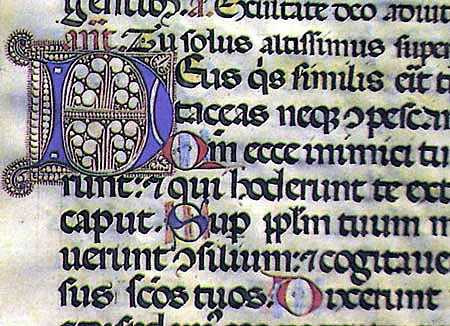 gentibus. A. Exultate deo adiut
Ant. Tu solus altissimus super
Deus q̄s similis erit t
taceas neqȝ ↄpescar
Qm̄ ecce inimici tu
runt: ⁊ qui hoderunt te ext
caput. Sup pplm̄ tuum m
uerunt ↄsilium: ⁊ cogitaue
sus sc̄os tuos. Dixerunt